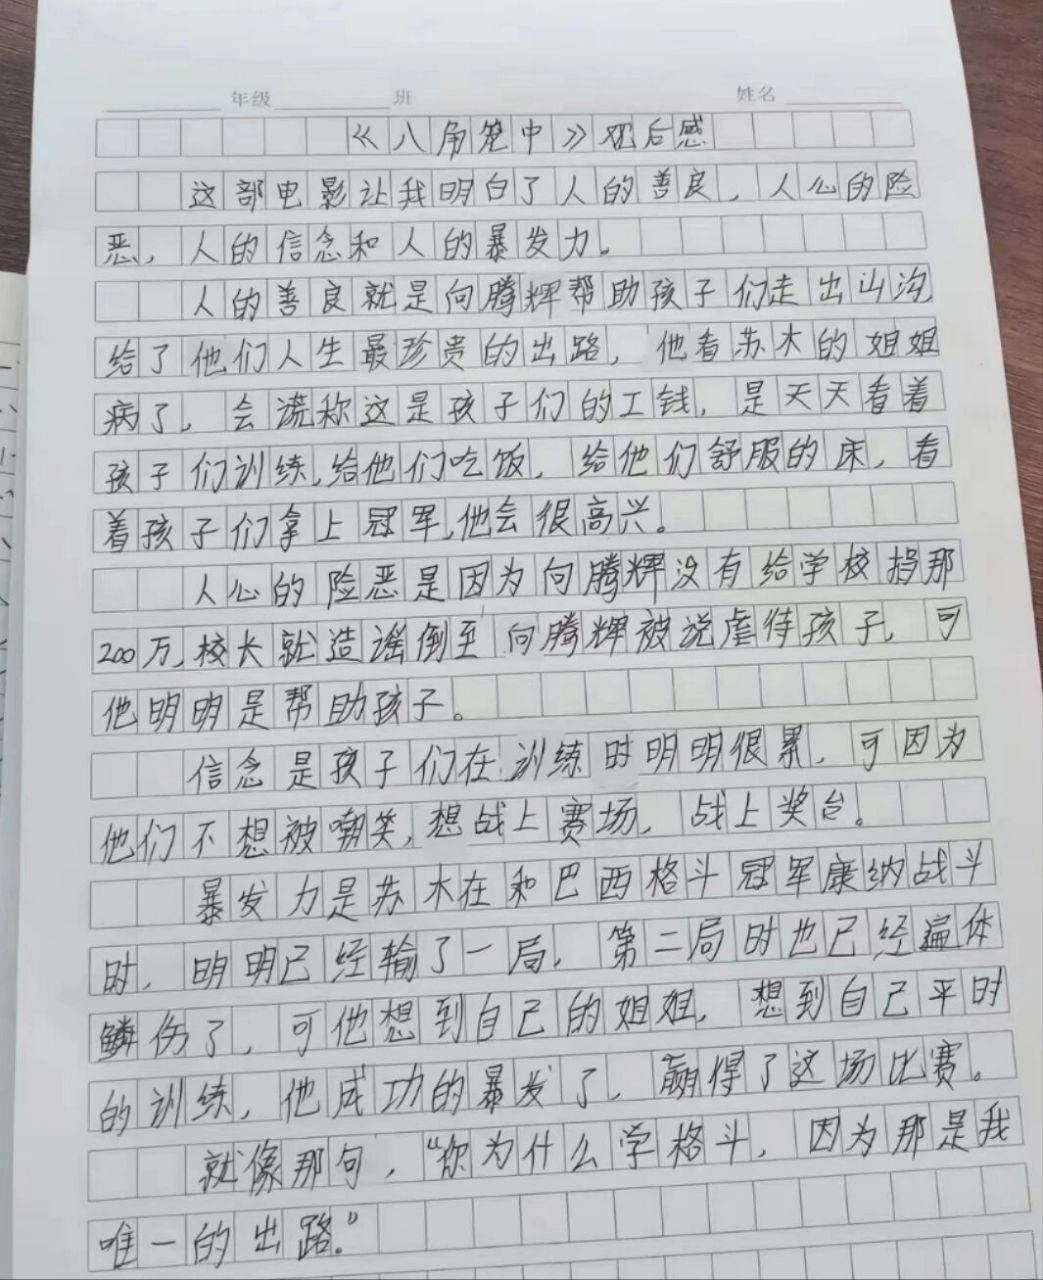 年级 班 姓名
《八角笼中》观后感
这部电影让我明白了人的善良，人心的险
恶，人的信念和人的暴发力。
人的善良就是向腾辉帮助孩子们走出山沟
给了他们人生最珍贵的出路，他看苏木的姐姐
病了，会谎称这是孩子们的工钱，是天天看着
孩子们训练，给他们吃饭，给他们舒服的床，看
着孩子们拿上冠军，他会很高兴。
人心的险恶是因为向腾辉没有给学校捐那
200万，校长就造谣倒至向腾辉被说虐待孩子，可
他明明是帮助孩子。
信念是孩子们在训练时明明很累，可因为
他们不想被嘲笑，想战上赛场，战上奖台。
暴发力是苏木在和巴西格斗冠军康纳战斗
时，明明已经输了一局，第二局时也已经遍体
鳞伤了，可他想到自己的姐姐，想到自己平时
的训练，他成功的暴发了，赢得了这场比赛。
就像那句，“你为什么学格斗，因为那是我
唯一的出路。”